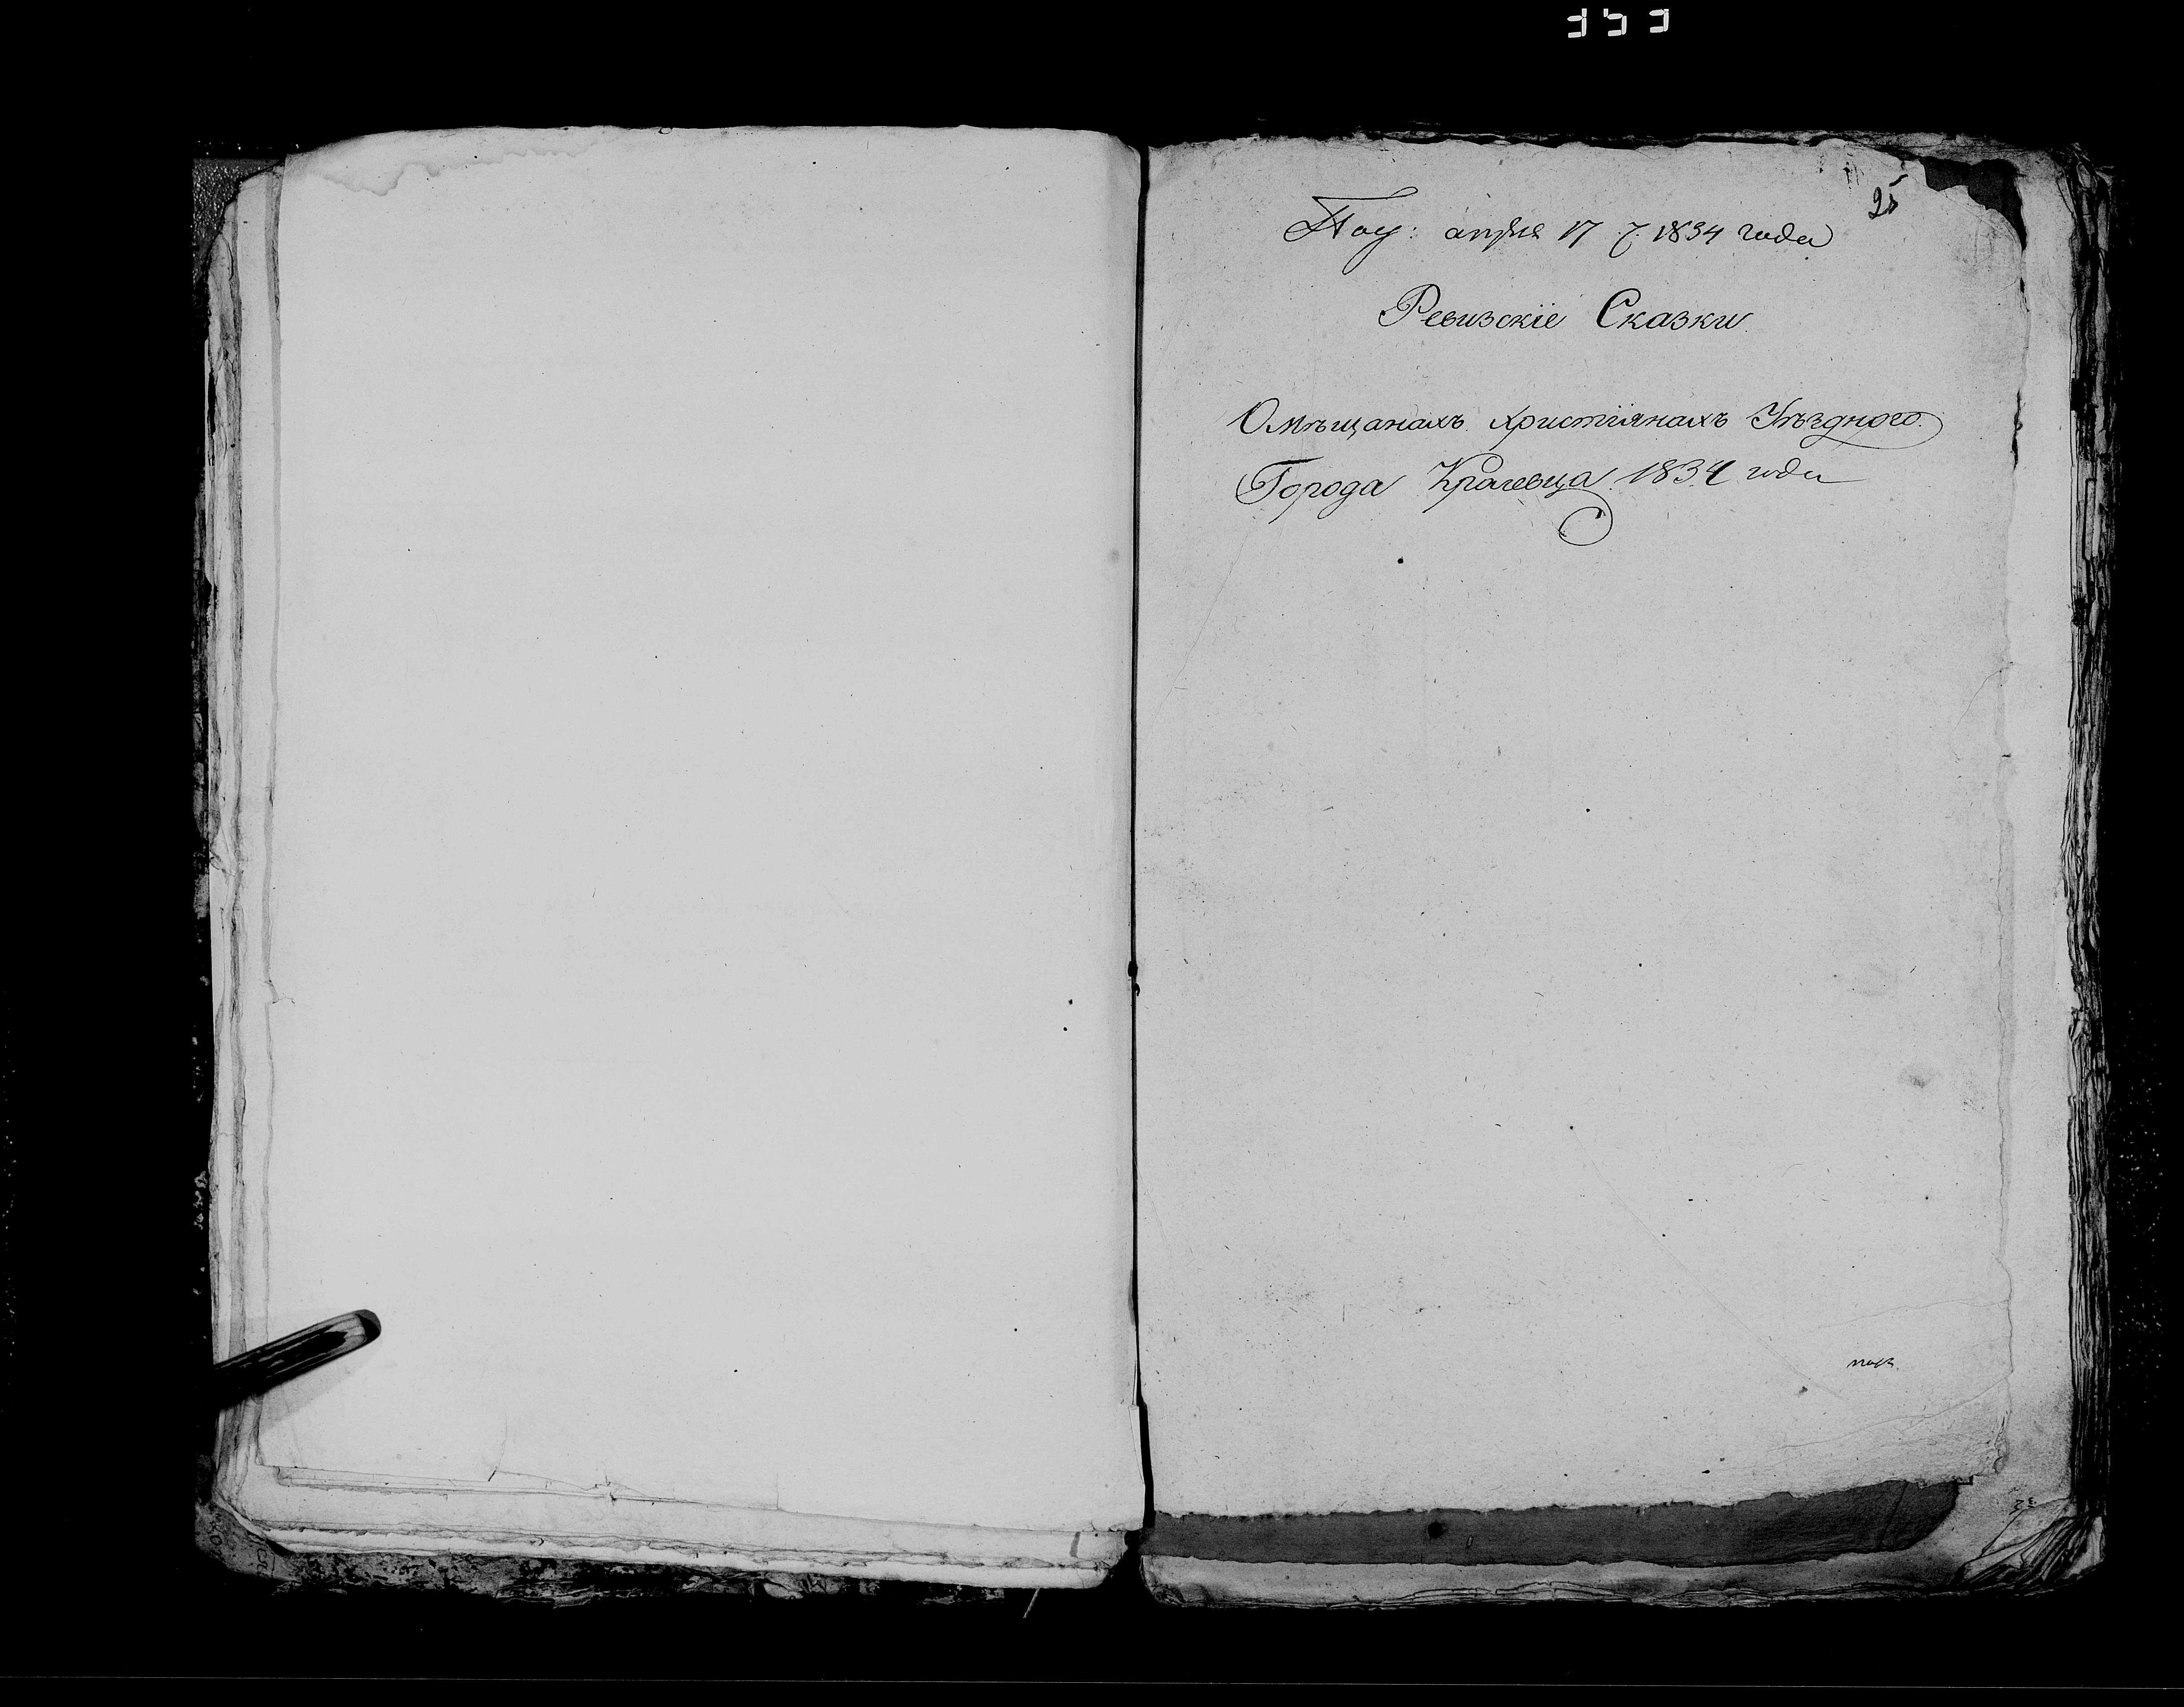 25
Пол: апрѣля 17 д. 1834 года
Ревизскіе Сказки
О мѣщанахъ христіянахъ Уѣзднаго
Города Крагевца 1834 года